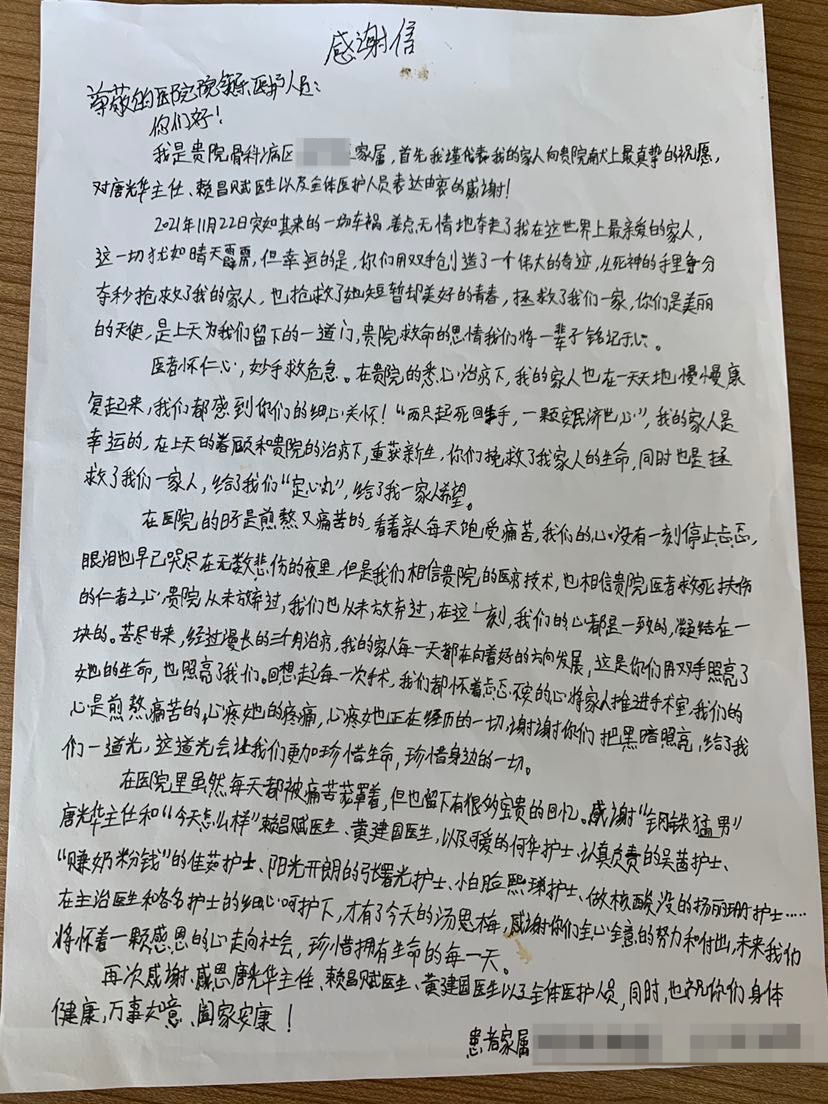 感谢信
尊敬的医院院领导、医护人员：
你们好！
我是贵院骨科病区 家属，首先我谨代表我的家人向贵院献上最真挚的祝愿，
对唐光华主任、赖昌赋医生以及全体医护人员表达由衷的感谢！
2021年11月22日突如其来的一场车祸，差点无情地夺走了我在这世界上最亲爱的家人，
这一切犹如晴天霹雳，但幸运的是，你们用双手创造了一个伟大的奇迹，从死神的手里争分
夺秒抢救了我的家人，也抢救了她短暂却美好的青春，拯救了我们一家，你们是美丽
的天使，是上天为我们留下的一道门，贵院救命的恩情我们将一辈子铭记于心。
医者怀仁心，妙手救危急。在贵院的悉心治疗下，我的家人也在一天天地慢慢康
复起来，我们都感到你们的细心关怀！“两只起死回生手，一颗安民济世心”，我的家人是
幸运的，在上天的眷顾和贵院的治疗下，重获新生，你们挽救了我家人的生命，同时也是拯
救了我们一家人，给了我们“定心丸”，给了我一家人希望。
在医院的日子是煎熬又痛苦的，看着亲人每天饱受痛苦，我们的心没有一刻停止忐忑，
眼泪也早已哭尽在无数悲伤的夜里，但是我们相信贵院的医疗技术，也相信贵院医者救死扶伤
的仁者之心，贵院从未放弃过，我们也从未放弃过，在这一刻，我们的心都是一致的，凝结在一
块的。苦尽甘来，经过漫长的三个月治疗，我的家人每一天都在向着好的方向发展，这是你们用双手照亮了
她的生命，也照亮了我们。回想起每一次手术，我们都怀着忐忑不安的心将家人推进手术室，我们的
心是煎熬痛苦的，心疼她的疼痛，心疼她正在经历的一切，谢谢你们把黑暗照亮，给了我
们一道光，这道光会让我们更加珍惜生命，珍惜身边的一切。
在医院里虽然每天都被痛苦笼罩着，但也留下有很多宝贵的回忆。感谢“钢铁猛男”
唐光华主任和“今天怎么样”赖昌赋医生、黄建国医生，以及可爱的何华护士、认真负责的吴茵护士、
“赚奶粉钱”的佳茹护士、阳光开朗的张曙光护士、小白脸熙琳护士、做核酸没的扬丽珊护士……
在主治医生和各名护士的细心呵护下，才有了今天的汤思梅，感谢你们全心全意的努力和付出，未来我们
将怀着一颗感恩的心走向社会，珍惜拥有生命的每一天。
再次感谢、感恩唐光华主任、赖昌赋医生、黄建国医生以及全体医护人员，同时，也祝你们身体
健康，万事如意、阖家安康！
患者家属